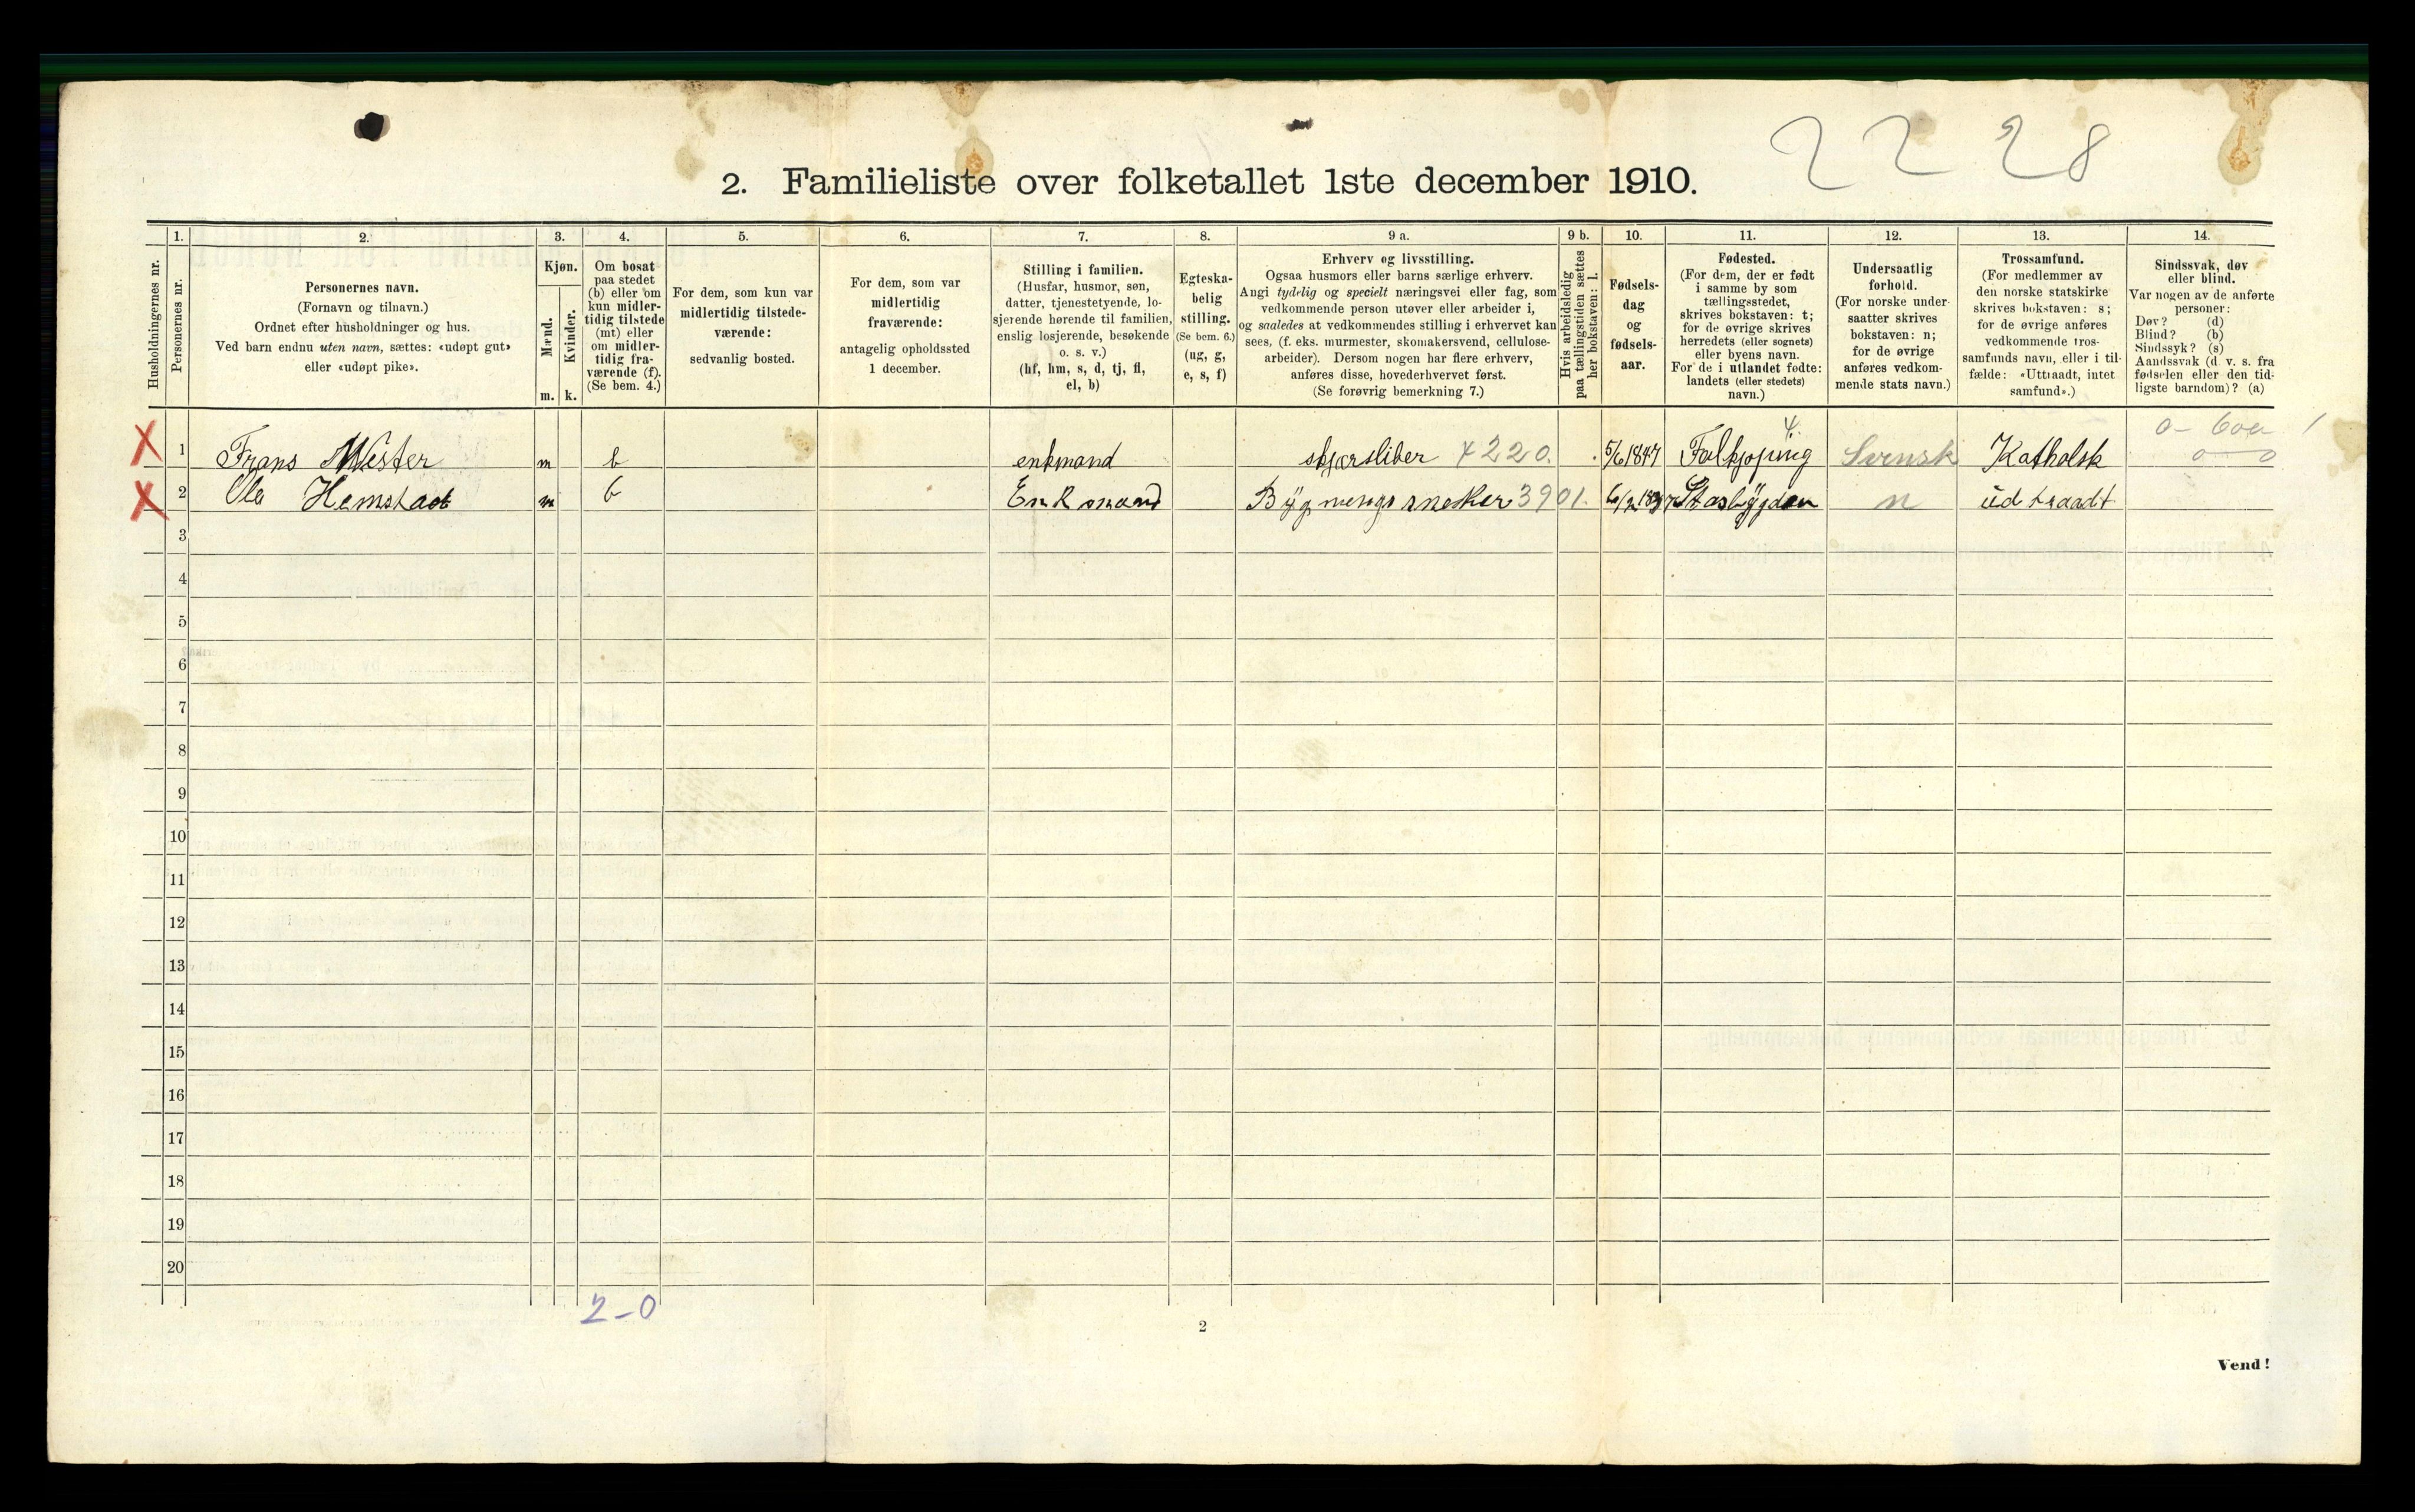 22 28
2. Familieliste over folketallet 1ste december 1910.
Husholdningernes nr.
1.
Personernes nr.
2.
Personernes navn.
(Fornavn og tilnavn.)
Ordnet efter husholdninger og hus.
Ved barn endnu uten navn, sættes: «udøpt gut»
eller «udøpt pike».
3.
Kjøn.
Mænd.
Kvinder.
m. k.
4.
Om bosat
paa stedet
(b) eller om
kun midler-
tidig tilstede
(mt) eller
om midler-
tidig fra-
værende (f).
(Se bem. 4.)
5.
For dem, som kun var
midlertidig tilstede-
værende:
sedvanlig bosted.
6.
For dem, som var
midlertidig
fraværende:
antagelig opholdssted
1 december.
7.
Stilling i familien.
(Husfar, husmor, søn,
datter, tjenestetyende, lo-
sjerende hørende til familien,
enslig losjerende, besøkende
o. s. v.)
(hf, hm, s, d, tj, fl,
el, b)
8.
Egteska-
belig
stilling.
(Se bem. 6.)
(ug, g,
e, s, f)
9 a.
Erhverv og livsstilling.
Ogsaa husmors eller barns særlige erhverv.
Angi tydelig og specielt næringsvei eller fag, som
vedkommende person utøver eller arbeider i,
og saaledes at vedkommendes stilling i erhvervet kan
sees, (f. eks. murmester, skomakersvend, cellulose-
arbeider). Dersom nogen har flere erhverv,
anføres disse, hovederhvervet først.
(Se forøvrig bemerkning 7.)
9 b.
Hvis arbeidsledig
paa tællingstiden sættes
her bokstaven: l.
10.
Fødsels-
dag
og
fødsels-
aar.
11.
Fødested.
(For dem, der er født
i samme by som
tællingsstedet,
skrives bokstaven: t;
for de øvrige skrives
herredets (eller sognets)
eller byens navn.
For de i utlandet fødte:
landets (eller stedets)
navn.)
12.
Undersaatlig
forhold.
(For norske under-
saatter skrives
bokstaven: n;
for de øvrige
anføres vedkom-
mende stats navn.)
13.
Trossamfund.
(For medlemmer av
den norske statskirke
skrives bokstaven: s;
for de øvrige anføres
vedkommende tros-
samfunds navn, eller i til-
fælde: «Uttraadt, intet
samfund».)
14.
Sindssvak, døv
eller blind.
Var nogen av de anførte
personer:
Døv? (d)
Blind? (b)
Sindssyk? (s)
Aandssvak (d. v. s. fra
fødselen eller den tid-
ligste barndom)? (a)
X 1 Frans Wester m b enkmand skjærsliber 4220. 5/6 1847 Falkjøping Svensk Katholsk 0 0
X 2 Ola Hemstad m b Enkmand Bygnings sneker 3901. n udtraadt
3
4
5
6
7
8
9
10
11
12
13
14
15
16
17
18
19
20
2-0
2
Vend!